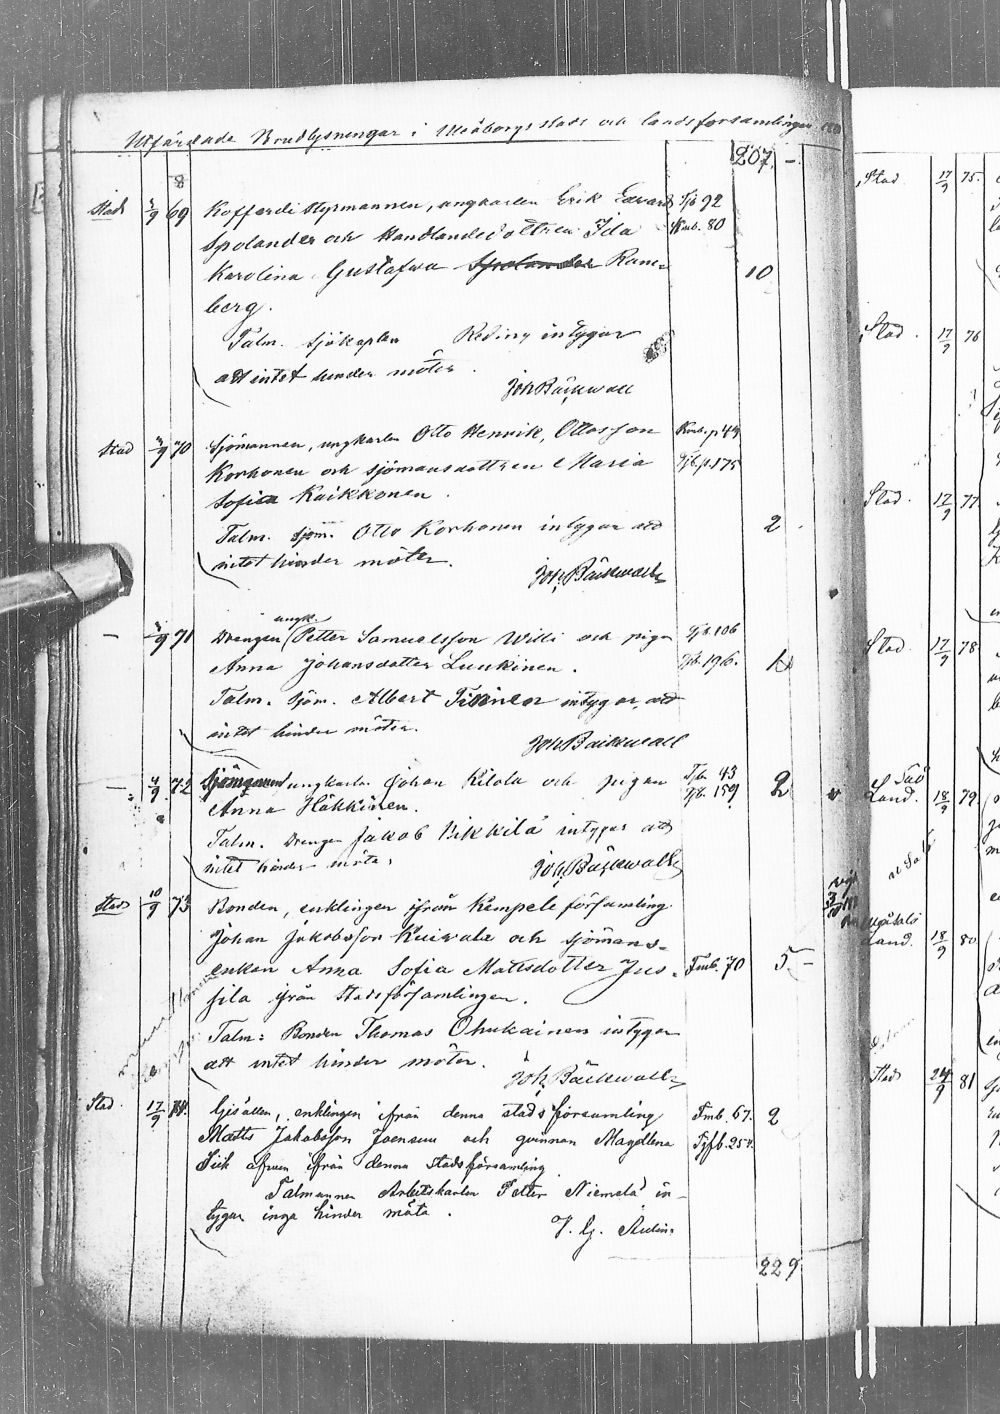 Utfärdade Brudlysningar i Uleåborgs stads och landsförsamlingar
207. -
Stads 3/9 69 Kofferdi Styrmannen, ungkarlen Erik Edvard Tjb 92
Spolander och Handlandedottren Ida Kmb. 80
Karolina Gustafva Spolander Rane- 10
berg.
Talm. Sjökapten Reding intygar
att intet hinder möter.
Joh Bäckwall
Stad 3/9 70 Sjömannen, ungkarlen Otto Henrik Ottosson Kmb. p 49
Korhonen och sjömansdottren Maria Tjb. p. 175
Sofia Kaikkonen.
Talm. Sjöm. Otto Korhonen intygar att 2
intet hinder möter.
Joh. Bäckwall
ungk.
— 3/9 71 Drengen Petter Samuelsson Willi och pigan Tjb. 106
Anna Johansdotter Luukinen. Tjb. 196.
Talm. Sjöm. Albert Tiainen intygar, att
intet hinder möter.
Joh Bäckwall
— 4/9 72 ungkarlen Johan Kilola och pigan Tjb. 43
Anna Häkkinen. Tjb. 159 2
Talm. Drengen Jakob Pikkilä intygar att
intet hinder möter.
Joh. Bäckwall
Stads 10/9 73 Bonden, enklingen ifrån Kempele församling
Johan Jakobsson Kuiwala och sjömans-
enkan Anna Sofia Mattsdotter Jus- Fmb. 70 5. -
sila ifrån Stadsförsamlingen.
Talm: Bonden Thomas Ohukainen intygar
att intet hinder möter.
Joh. Bäckwall
Stad. 17/9 74. Gesällen, enklingen ifrån denna stads församling Fmb. 67. 2
Matts Jakobsson Joensuu och qvinnan Magdlena Tjfb. 254.
Siik äfven ifrån denna stadsförsamling.
Talmannen Arbetskarlen Petter Niemelä in-
tygar inga hinder möta.
229
Stad 17/9 75.
Stad. 17/9 76
Stad. 17/9 77
Stad. 17/9 78
Land. 18/9 79
Land. 18/9 80
Stads 24/9 81